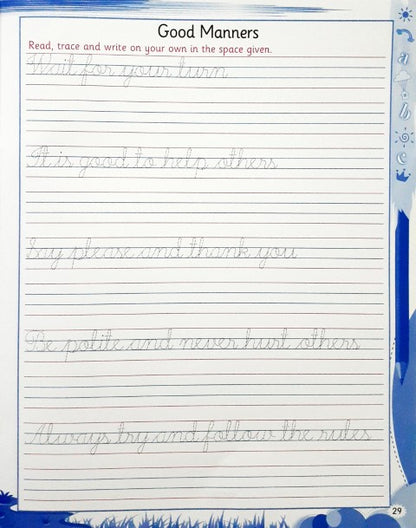 Good Manners
Read, trace and write on your own in the space given.
Wait for your turn
It is good to help others
Say please and thank you
Be polite and never hurt others
Always try and follow the rules
a
b
c
29